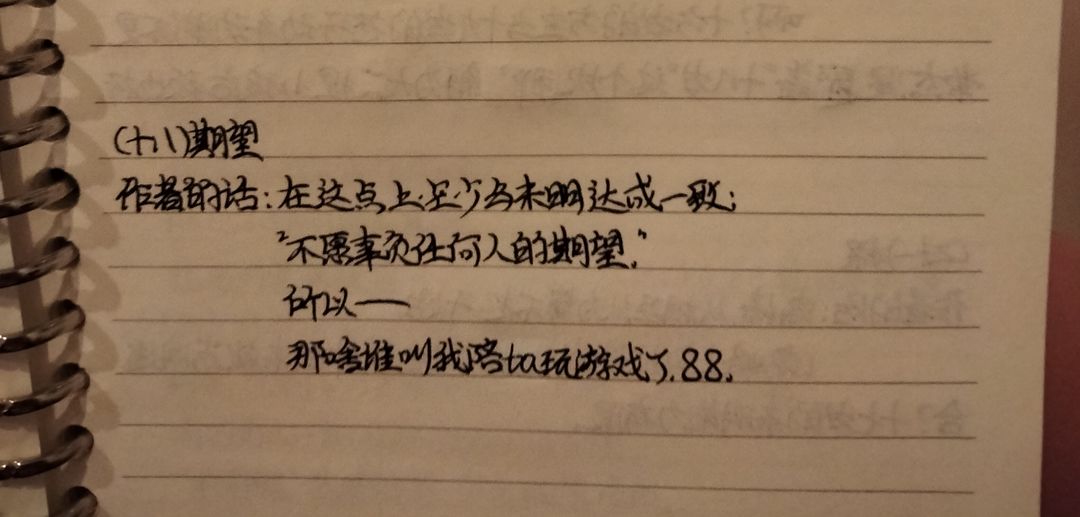 (十八)期望
作者的话:在这点上至少与未明达成一致:
"不愿辜负任何人的期望。"
所以——
那啥谁叫我陪ta玩游戏了.88.